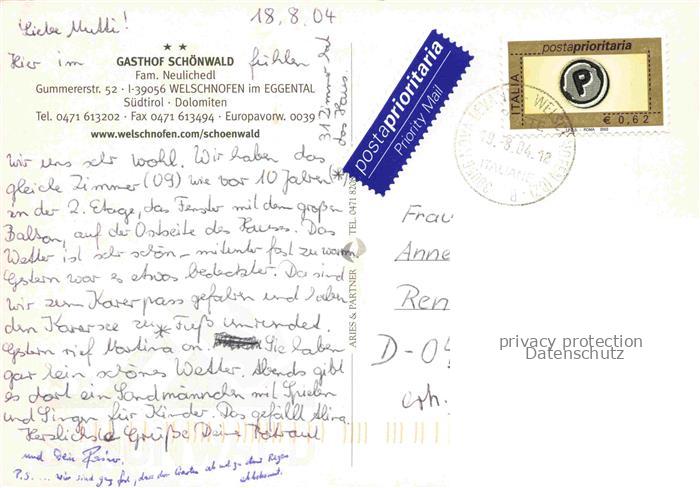 Liebe Mutti!
18.8.04
Hier im
★ ★
GASTHOF SCHÖNWALD
fühlen
Fam. Neulichedl
Gummererstr. 52 · I-39056 WELSCHNOFEN im EGGENTAL
Südtirol · Dolomiten
Tel. 0471 613202 · Fax 0471 613494 · Europavorw. 0039
www.welschnofen.com/schoenwald
31 Zimmer hat
das Haus.
wir uns sehr wohl. Wir haben das
gleiche Zimmer (09) wie vor 10 Jahren (*)
in der 2. Etage, das Fenster mit dem großen
Balkon, auf der Ostseite des Hauses. Das
Wetter ist sehr schön – mitunter fast zu warm.
Gestern war es etwas bedeckter. Da sind
wir zum Karerpass gefahren und haben
den Karersee zu Fuß umrundet.
Gestern rief Martina an. Sie haben
gar kein schönes Wetter. Abends gibt
es dort ein Sandmännchen mit Spielen
und Singen für Kinder. Das gefällt
Herzlichste Grüße Deine
und Dein Rainer.
P.S.... wir sind ganz froh, dass der Garten ab und zu einen Regen
postaprioritaria
Priority Mail
postaprioritaria
ITALIA
P
€ 0,62
I.P.Z.S. - ROMA 2002
19.-8.04.12
ITALIANE
ARIES & PARTNER
TEL. 0471 8208
Frau
Anne
Ren
D-04
erh.
privacy protection
Datenschutz